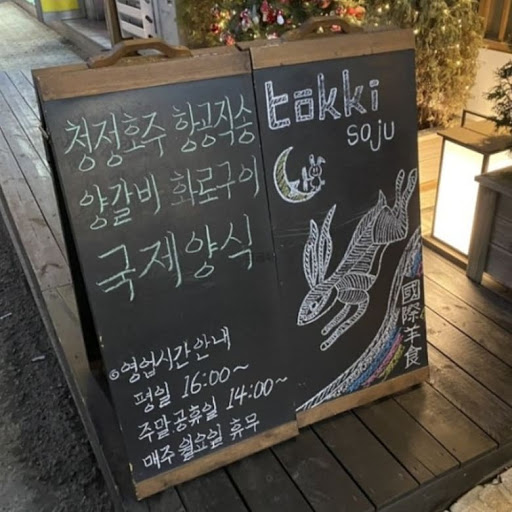 청정호주 항공직송
양갈비 화로구이
국제양식
영업시간 안내
평일 16:00~
주말 공휴일 14:00~
매주 월요일 휴무
tokki
soju
國際羊食